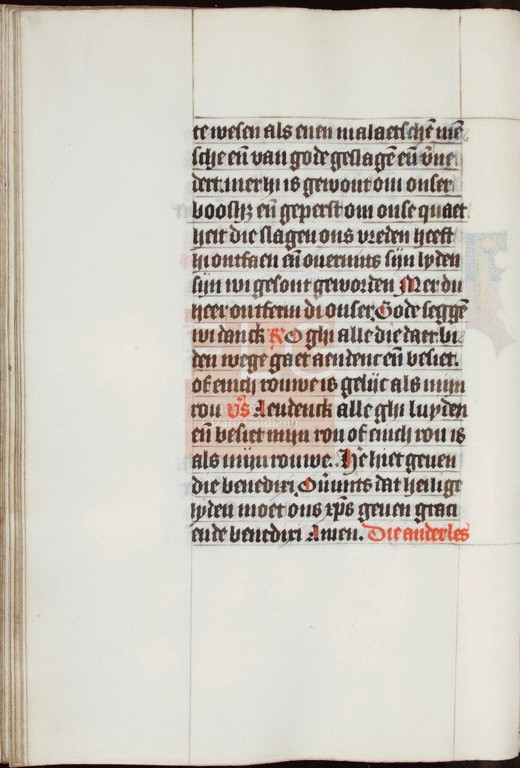 te wesen als enen malaetschē mē
sche eñ van gode geslagē eñ v̄ne
dert. mer hi is gewont om onser
boosh₃ eñ geperst om onse quaet
heit die slagen ons vreden heeft
hi ontfaen eñ ouermits sijn lyden
sijn wi gesont geworden Mer du
heer ontferm di onser. Gode seggē
wi danck R̷ O ghi alle die daer bi
den wege gaet aendenct eñ besiet.
of enich rouwe is gelijc als mijn
rou v̄s Aendenck alle ghi luyden
eñ besiet mijn rou of enich rou is
als mijn rouwe. He hiet geuen
die benedixi Ou̅mits dat heilige
lyden moet ons xp̄s geuen graci
ende benedixi Amen. Die ander les